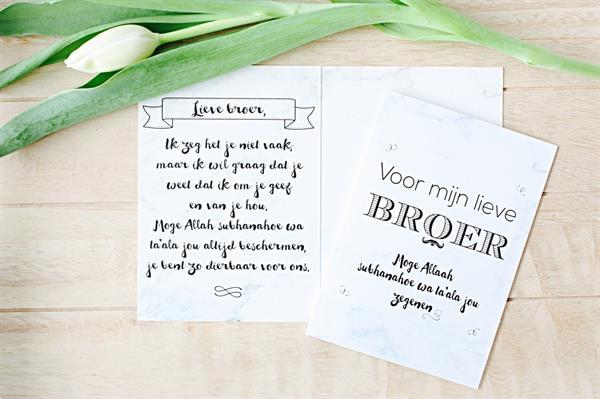 Lieve broer,
Ik zeg het je niet vaak,
maar ik wil graag dat je
weet dat ik om je geef
en van je hou.
Moge Allah subhanahoe wa
ta'ala jou altijd beschermen,
je bent zo dierbaar voor ons.
Voor mijn lieve
BROER
Moge Allaah
subhanahoe wa ta'ala jou
zegenen